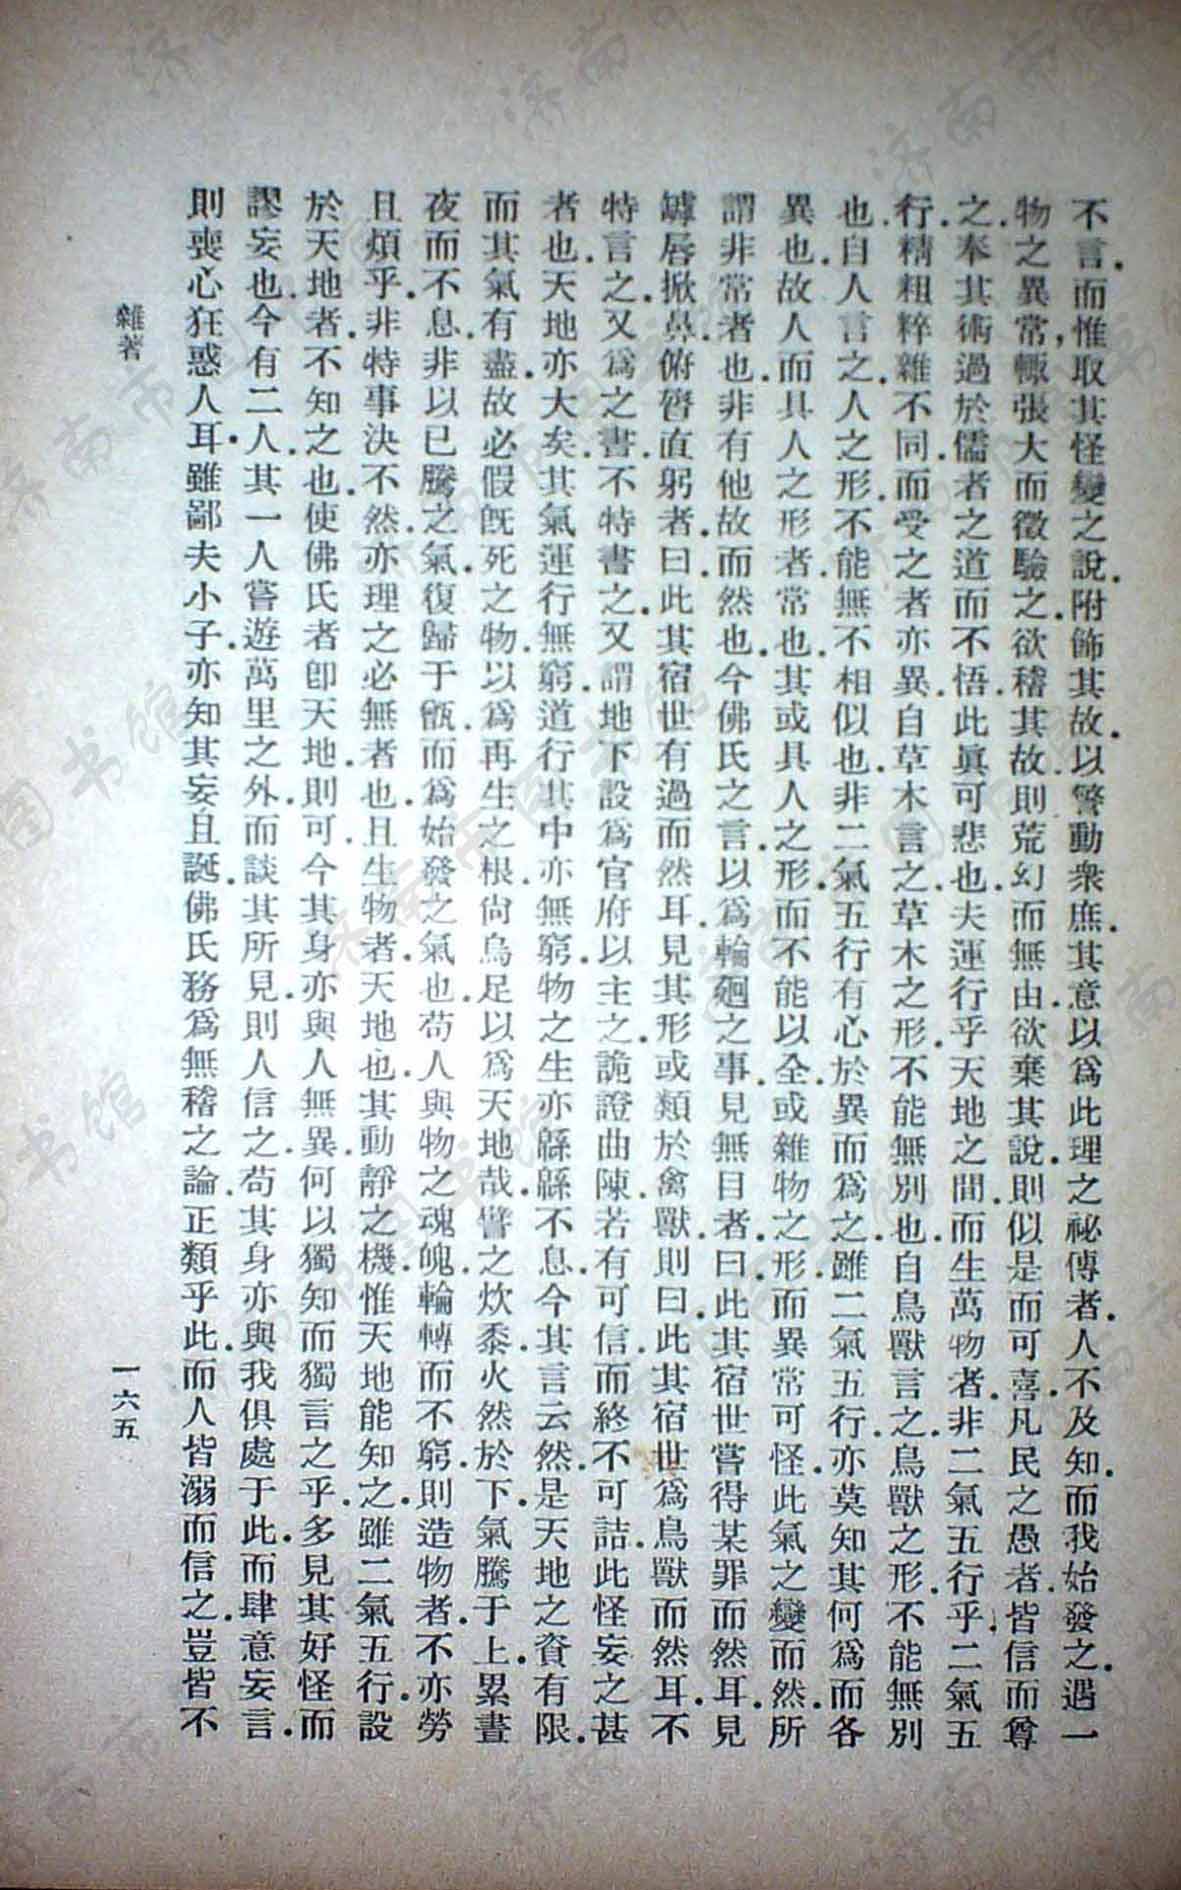 不言.而惟取其怪變之說.附飾其故.以警動衆庶.其意以爲此理之祕傳者.人不及知.而我始發之.遇一
物之異常,輒張大而徵驗之.欲稽其故.則荒幻而無由.欲棄其說.則似是而可喜.凡民之愚者.皆信而尊
之.奉其術過於儒者之道而不悟.此眞可悲也.夫運行乎天地之間.而生萬物者.非二氣五行乎.二氣五
行.精粗粹雜不同.而受之者亦異.自草木言之.草木之形.不能無別也.自鳥獸言之.鳥獸之形.不能無別
也.自人言之.人之形.不能無不相似也.非二氣五行有心於異而爲之.雖二氣五行.亦莫知其何爲而各
異也.故人而具人之形者.常也.其或具人之形.而不能以全.或雜物之形.而異常可怪.此氣之變而然.所
謂非常者也.非有他故而然也.今佛氏之言.以爲輪廻之事.見無目者.曰.此其宿世嘗得某罪而然耳.見
罅唇掀鼻.俯膋直躬者.曰.此其宿世有過而然耳.見其形或類於禽獸.則曰.此其宿世爲鳥獸而然耳.不
特言之.又爲之書.不特書之.又謂地下設爲官府以主之.詭證曲陳.若有可信.而終不可詰.此怪妄之甚
者也.天地亦大矣.其氣運行無窮.道行其中亦無窮.物之生亦緜緜不息.今其言云然.是天地之資有限.
而其氣有盡.故必假旣死之物.以爲再生之根.尙烏足以爲天地哉.譬之炊黍.火然於下.氣騰于上.累晝
夜而不息.非以已騰之氣.復歸于甑.而爲始發之氣也.苟人與物之魂魄.輪轉而不窮.則造物者.不亦勞
且煩乎.非特事決不然.亦理之必無者也.且生物者.天地也.其動靜之機.惟天地能知之.雖二氣五行.設
於天地者.不知之也.使佛氏者卽天地.則可.今其身亦與人無異.何以獨知而獨言之乎.多見其好怪而
謬妄也.今有二人.其一人嘗遊萬里之外.而談其所見.則人信之.苟其身亦與我俱處于此.而肆意妄言.
則喪心狂惑人耳.雖鄙夫小子.亦知其妄且誕.佛氏務爲無稽之論.正類乎此.而人皆溺而信之.豈皆不
雜著
一六五